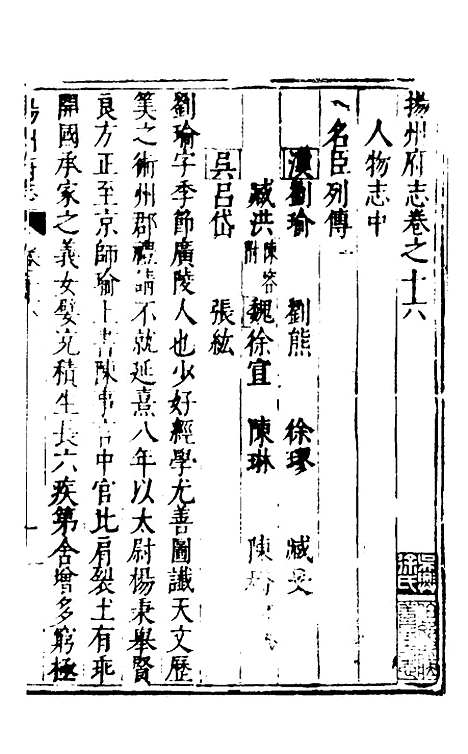 揚州府志卷之十六
人物志中
名臣列傳一
漢劉瑜 劉熊 徐璆 臧旻
臧洪 陳容附 魏徐宣 陳琳 陳矯
吳呂岱 張紘
劉瑜字季節廣陵人也少好經學尤善圖讖天文歷
筭之術州郡禮請不就延熹八年以太尉楊秉舉賢
良方正至京師瑜上書陳事言中官比肩裂土有乖
開國承家之義女嬖充積生長六疾第舍增多窮極
揚州府志
吳興徐氏